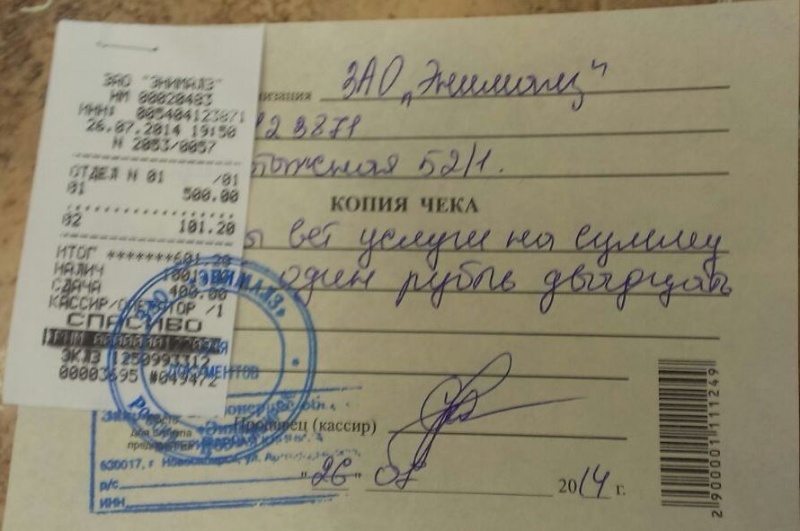 ЗАО "ЭНИМАЛЗ"
НМ 00020483
ИНН: 005404123871
26.07.2014 19:50
N 2053/0057
ОТДЕЛ N 01 /01
01 500.00
02 101.20
ИТОГ *******601.20
НАЛИЧ
СДАЧА 400.00
КАССИР/ОПЕРАТОР /1
СПАСИБО
ЭКЛЗ 1250993312
00003695 #049472
низация ЗАО „Энималз"
123871
52/1.
КОПИЯ ЧЕКА
вет услуги на сумму
один рубль двадцать
"ЭНИМАЛЗ"
ДОКУМЕНТОВ
Продавец (кассир)
630017, г. Новосибирск, ул.
р/с
ИНН
"26" 07 2014 г.
2 900001 111249